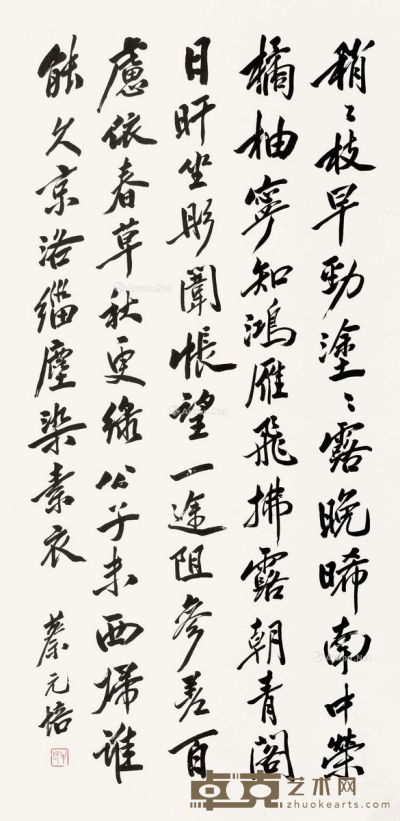 稍〻枝早勁塗〻露晚晞南中榮
橘柚寧知鴻雁飛拂露朝青閣
日旰坐彤闈悵望一途阻參差百
慮依春草秋更綠公子未西歸誰
能久京洛緇塵染素衣
蔡元培
卓克艺术网
zhuokearts.com